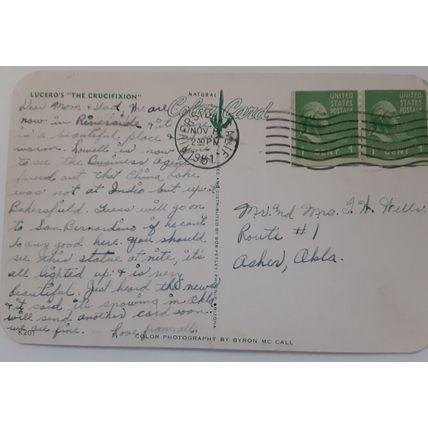 LUCERO'S "THE CRUCIFIXION"
Dear Mom & Dad, We are
now in Riverside & it
is a beautiful place &
warm. Lowell is now
to see the Business agent
found out that China Lake
was not at Indio but up
Bakersfield. Guess will go on
to San Bernardino if he can't
do any good here. You should
see this statue at nite, it's
all lighted up & is very
beautiful. Just heard the news
& it said it's snowing in Okla
will send another card soon.
we are fine. Love from all.
K201
NATURAL
Color Card
NOV
2 30 PM
CALIF.
UNITED
STATES
POSTAGE
1 CENT 1
UNITED
STATES
POSTAGE
1 CENT 1
Mr. and Mrs. J. W. Wells
Route #1
Asher, Okla.
COLOR PHOTOGRAPHY BY BYRON MC CALL